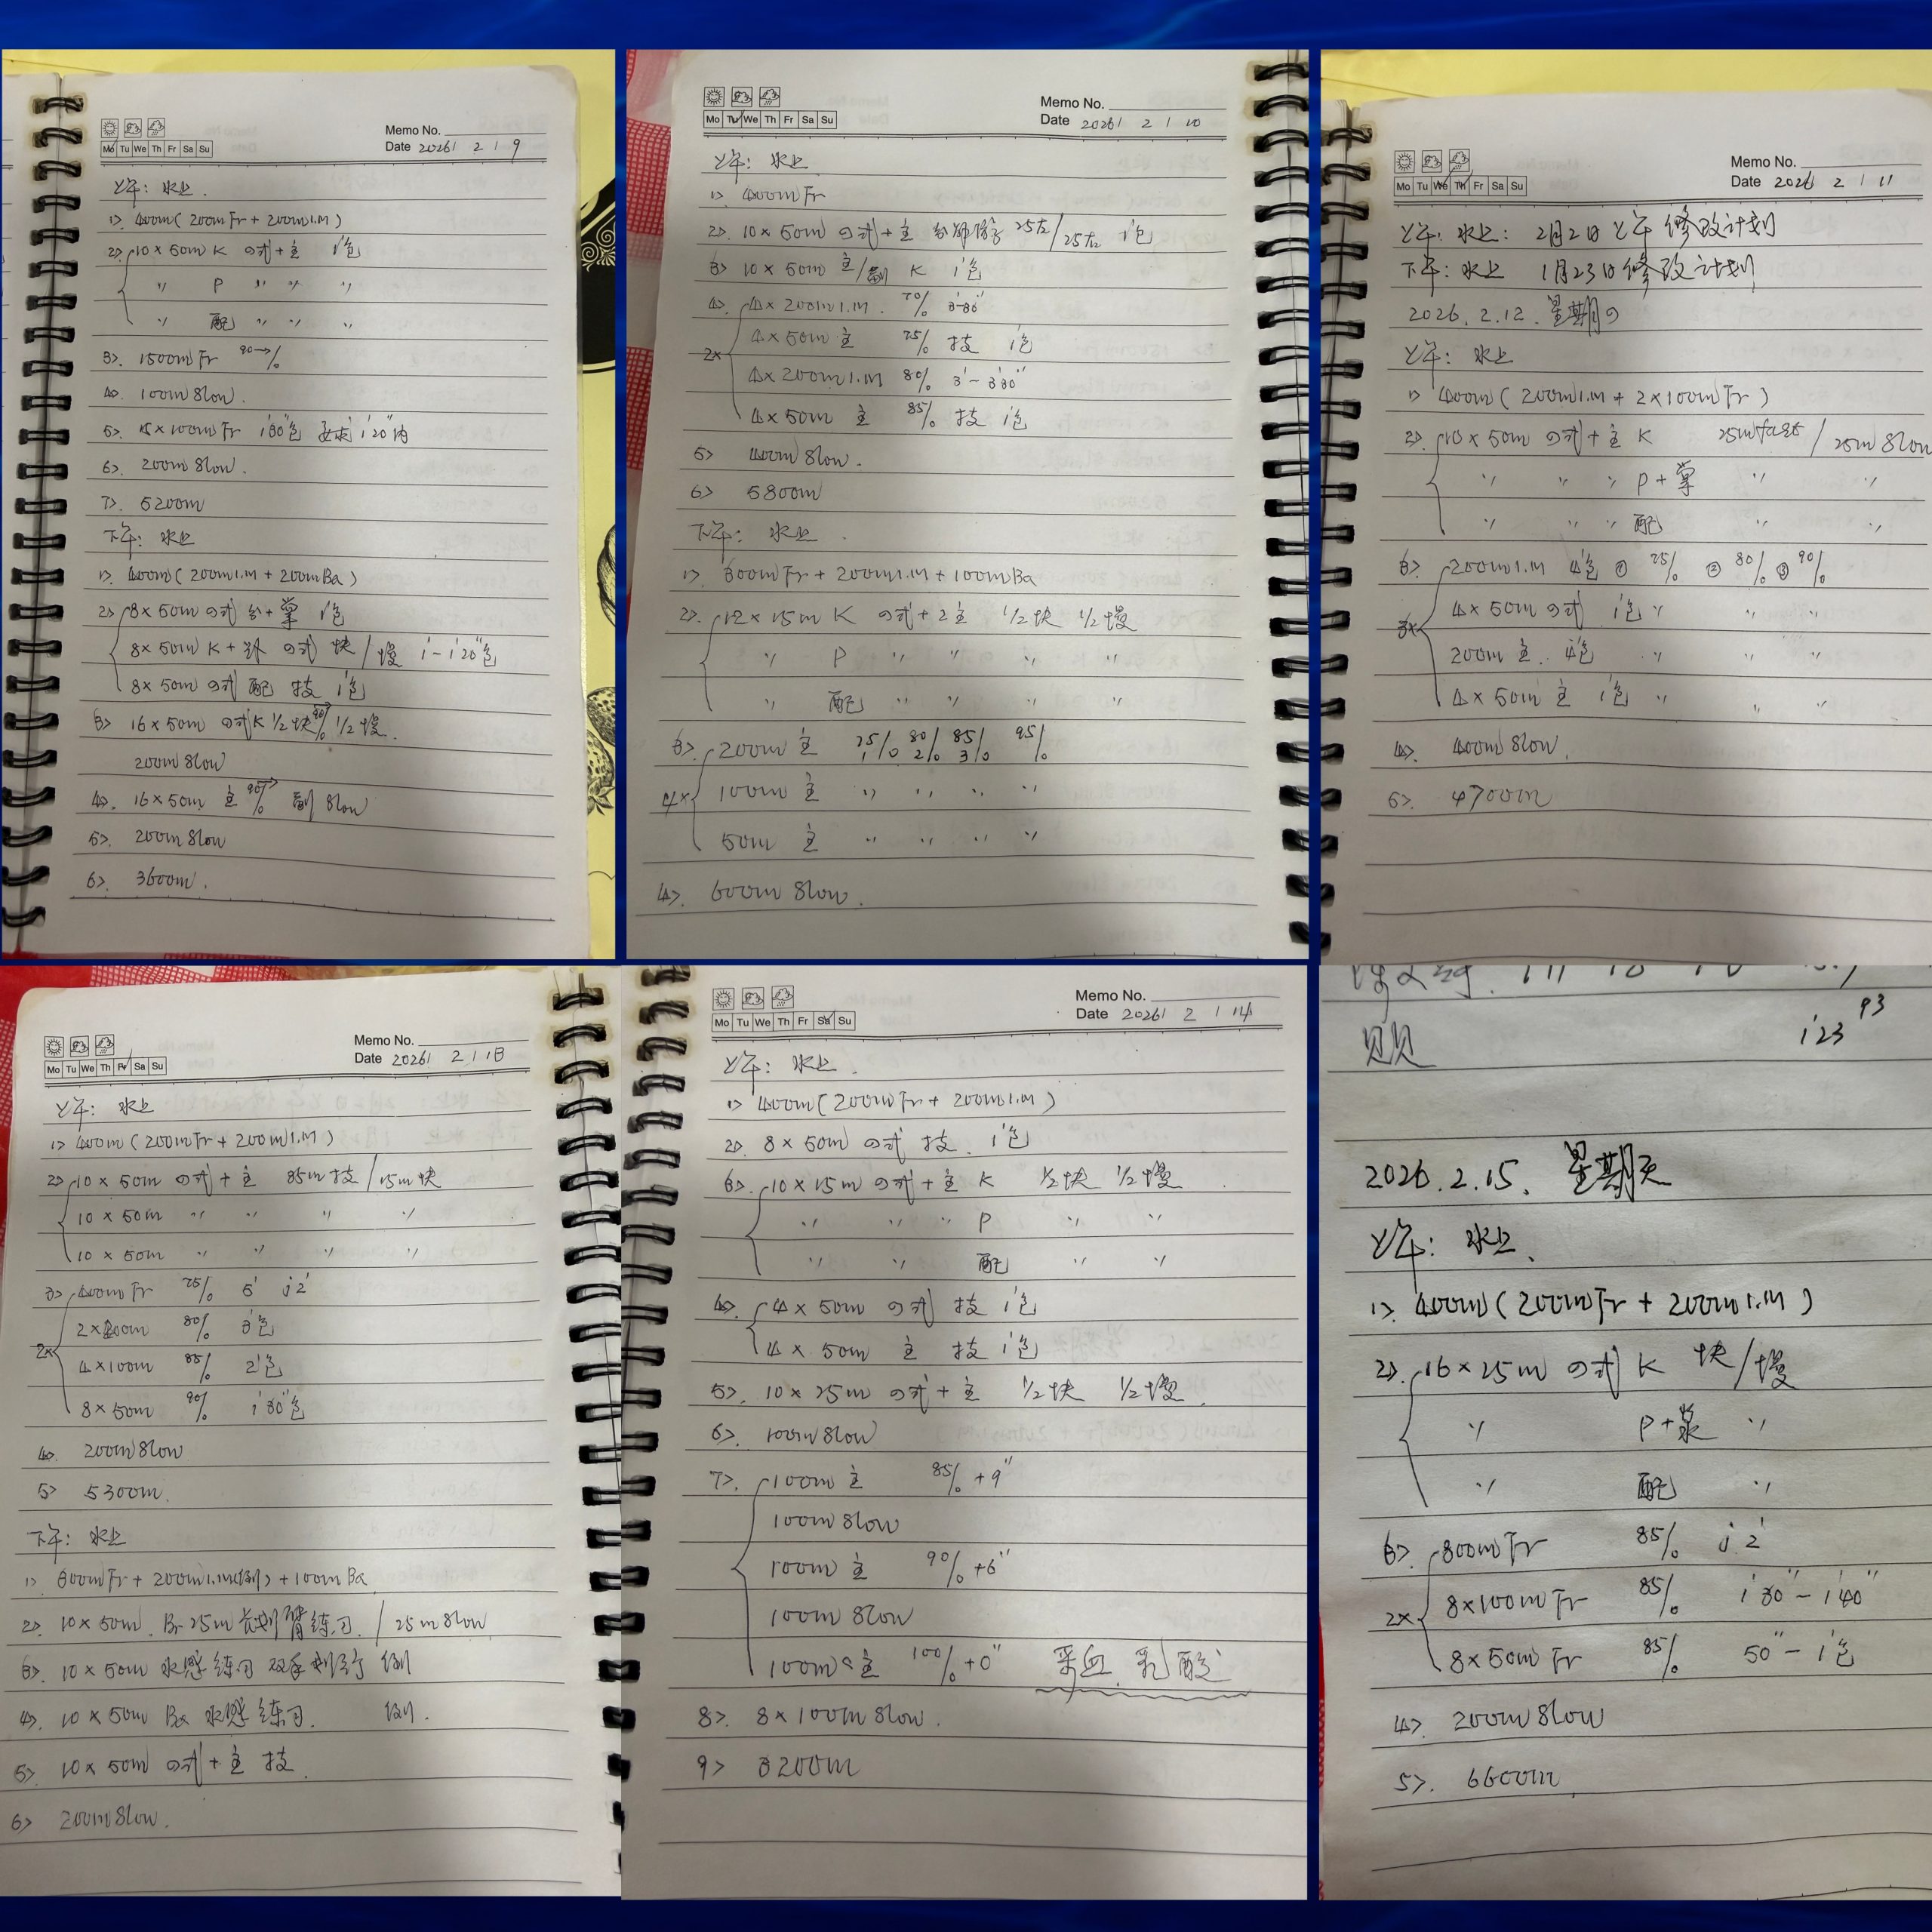 Mo Tu We Th Fr Sa Su
Memo No.
Date 2026 / 2 / 9
上午: 水上.
1>. 400m (200m Fr + 200m I.M)
2>. 10 × 50m K 四式 + 主 1'包
〃 P 〃 〃 〃
〃 配 〃 〃 〃
3>. 1500m Fr 90→%
4>. 100m Slow.
5>. 15 × 100m Fr 1'30"包 要求 1'20"内
6>. 200m Slow.
7>. 5200m
下午: 水上
1>. 400m (200m I.M + 200m Ba)
2>. 8 × 50m 四式 分 + 掌 1'包
8 × 50m K + 四式 快/慢 1' - 1'20"包
8 × 50m 四式 配 技 1'包
3> 16 × 50m 四式 K 1/2 快 90→% 1/2 慢.
200m Slow
4>. 16 × 50m 主 90→% 副 Slow
5>. 200m Slow
6>. 3600m.
Mo Tu We Th Fr Sa Su
Memo No.
Date 2026 / 2 / 10
上午: 水上
1>. 400m Fr
2>. 10 × 50m 四式 + 主 分 25左/25右 1'包
3> 10 × 50m 主/副 K 1'包
4>. 4 × 200m I.M. 70% 3'-30"
4 × 50m 主 75% 技 1'包
2×
4 × 200m I.M 80% 3' - 3'30"
4 × 50m 主 85% 技 1'包
5> 400m Slow.
6> 5800m
下午: 水上.
1>. 300m Fr + 200m I.M + 100m Ba
2>. 12 × 15m K 四式 + 2主 1/2 快 1/2 慢
〃 P 〃 〃 〃 〃
〃 配 〃 〃 〃 〃
3>. 200m 主 75% 1 80% 2 85% 3 95%
4× 100m 主 〃 〃 〃 〃
50m 主 〃 〃 〃 〃
4>. 600m Slow.
Mo Tu We Th Fr Sa Su
Memo No.
Date 2026 / 2 / 11
上午: 水上: 2月2日上午修改计划
下午: 水上 1月23日修改计划
2026. 2.12. 星期四
上午: 水上
1> 400m (200m I.M + 2 × 100m Fr)
2>. 10 × 50m 四式 + 主 K 25m fast / 25m Slow
〃 〃 〃 P + 掌 〃 〃
〃 〃 〃 配 〃 〃
3>. 200m I.M 4'包 ① 75% ② 80% ③ 90%
4 × 50m 四式 1'包 〃 〃 〃
3×
200m 主. 4'包 〃 〃 〃
4 × 50m 主 1'包 〃 〃 〃
4>. 400m Slow.
5>. 4700m
Mo Tu We Th Fr Sa Su
Memo No.
Date 2026 / 2 / 13
上午: 水上
1> 400m (200m Fr + 200m I.M)
2> 10 × 50m 四式 + 主 35m 技 / 15m 快
10 × 50m 〃 〃 〃 〃
10 × 50m 〃 〃 〃 〃
3> 400m Fr 75% 6' j 2'
2 × 200m 80% 3'包
2×
4 × 100m 85% 2'包
8 × 50m 90% 1'30"包
4>. 200m Slow
5> 5300m.
下午: 水上
1>. 300m Fr + 200m I.M(倒) + 100m Ba
2>. 10 × 50m. Br 25m 长划臂练习. / 25m Slow
3>. 10 × 50m 水感练习 双手划行 倒
4>. 10 × 50m 水感练习. 倒.
5>. 10 × 50m 四式 + 主 技.
6> 200m Slow.
Mo Tu We Th Fr Sa Su
Memo No.
Date 2026 / 2 / 14
上午: 水上.
1> 400m (200m Fr + 200m I.M)
2>. 8 × 50m 四式 技. 1'包
3>. 10 × 15m 四式 + 主 K 1/2 快 1/2 慢.
〃 〃 〃 P 〃 〃
〃 〃 配 〃 〃
4>. 4 × 50m 四式 技 1'包
4 × 50m 主 技 1'包
5>. 10 × 25m 四式 + 主 1/2 快 1/2 慢.
6>. 100m Slow
7>. 100m 主 85% + 9"
100m Slow
100m 主 90% + 6"
100m Slow
100m 主 100% + 0" 采血 乳酸
8> 8 × 100m Slow.
9> 3200m
1'23 93
2026. 2. 15. 星期天
上午: 水上.
1>. 400m (200m Fr + 200m I.M)
2>. 16 × 25m 四式 K 快/慢
〃 P + 掌 〃
〃 配 〃
3>. 800m Fr 85% j 2'
2× 8 × 100m Fr 85% 1'30" - 1'40"
8 × 50m Fr 85% 50" - 1'包
4>. 200m Slow
5>. 6600m.